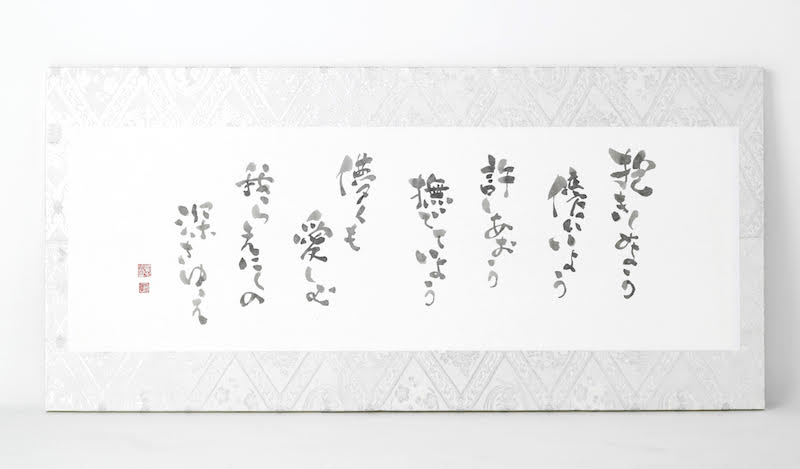 抱きしめよう
傍にいよう
許しあおう
撫でていよう
儚くも
愛しむ
我らえにしの
深さゆえ